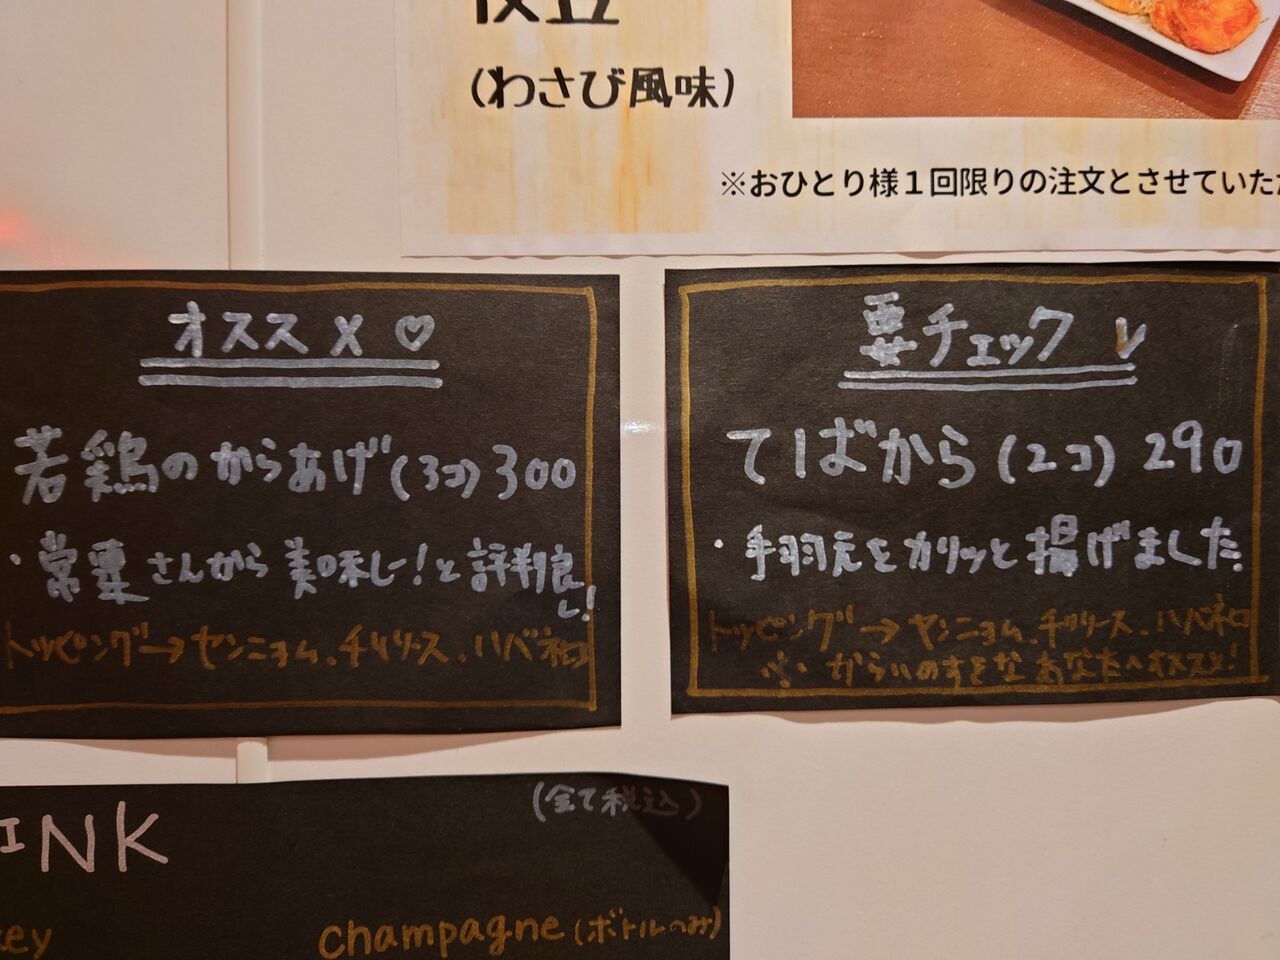 枝豆
(わさび風味)
※おひとり様1回限りの注文とさせていただ
オススメ♡
若鶏のからあげ(3コ) 300
・常連さんから美味しー!と評判良し!
トッピング→ヤンニョム、チリソース、ハバネロ
要チェック
てばから(2コ) 290
・手羽元をカリッと揚げました
トッピング→ヤンニョム、チリソース、ハバネロ
※からいのすきなあなたへオススメ!
(全て税込)
INK
key
champagne(ボトルのみ)